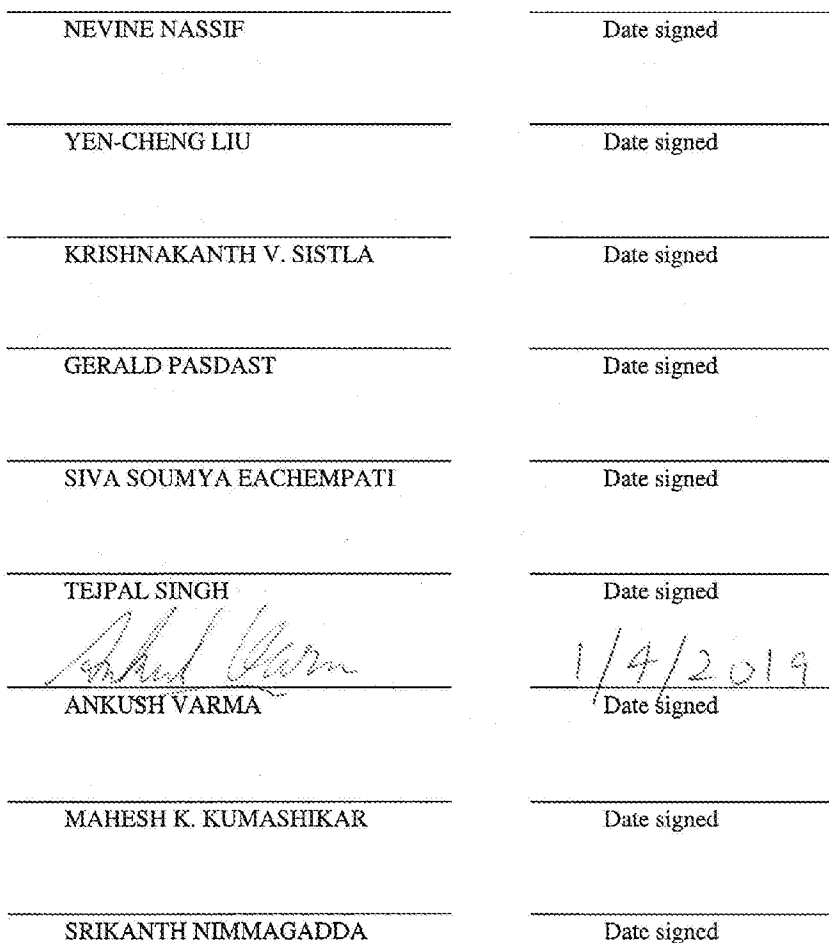 NEVINE NASSIF Date signed
YEN-CHENG LIU Date signed
KRISHNAKANTH V. SISTLA Date signed
GERALD PASDAST Date signed
SIVA SOUMYA EACHEMPATI Date signed
TEJPAL SINGH Date signed
Ankush Varma 1/4/2019
ANKUSH VARMA Date signed
MAHESH K. KUMASHIKAR Date signed
SRIKANTH NIMMAGADDA Date signed